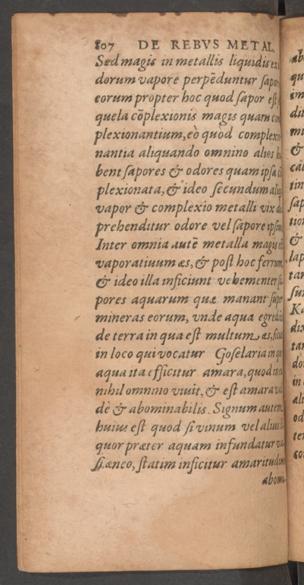 807 DE REBVS METAL.
Sed magis in metallis liquidis ex
dorum vapore perpẽduntur sapo
eorum propter hoc quod sapor est
quela cõplexionis magis quam com
plexionantium, eò quod complexio
nantia aliquando omnino alios ha
bent sapores & odores quam ipsa cõ
plexionata, & ideo secundum aliqu
vapor & complexio metalli vix de
prehenditur odore vel sapore ipsiu
Inter omnia autẽ metalla magis e
vaporatiuum æs, & post hoc ferrum,
& ideo illa inficiunt vehementer sa
pores aquarum quæ manant super
mineras eorum, vnde aqua egredi
de terra in qua est multum æs, sicut
in loco qui vocatur Goselaria in
aqua ita efficitur amara, quod in
nihil omnino viuit, & est amara val
dè & abominabilis. Signum autem
huius est quod si vinum vel alius li
quor præter aquam infundatur va
si æneo, statim inficitur amaritudine
abomi